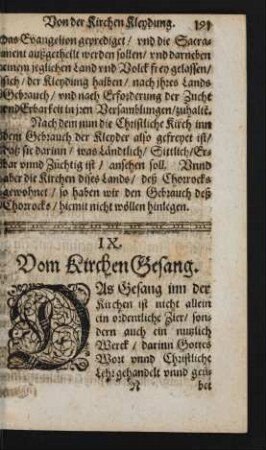 Von der Kirchen Kleydung. 191
das Evangelion geprediget / vnd die Sacra-
ment außgetheilt werden sollen / vnd darneben
einem jeglichen Land vnd Volck frey gelassen /
sich / der Kleydung halben / nach jhres Lands
Gebrauch / vnd nach Erforderung der Zucht
vnd Erbarkeit in jren Versamblungen / zuhalte.
Nach dem nun die Christliche Kirch inn
dem Gebrauch der Kleyder also gefreyet ist /
daß sie darinn / was Ländtlich / Sittlich / Er-
bar vnnd Züchtig ist / ansehen soll. Vnnd
aber die Kirchen dises Lands / deß Chorrocks
gewohnet / so haben wir den Gebrauch deß
Chorrocks / hiemit nicht wöllen hinlegen.
IX.
Vom Kirchen Gesang.
DAs Gesang inn der
Kirchen ist nicht allein
ein ordentliche Zier / son-
dern auch ein nutzlich
Werck / darinn Gottes
Wort vnnd Christliche
Lehr gehandelt vnnd geü-
N bet